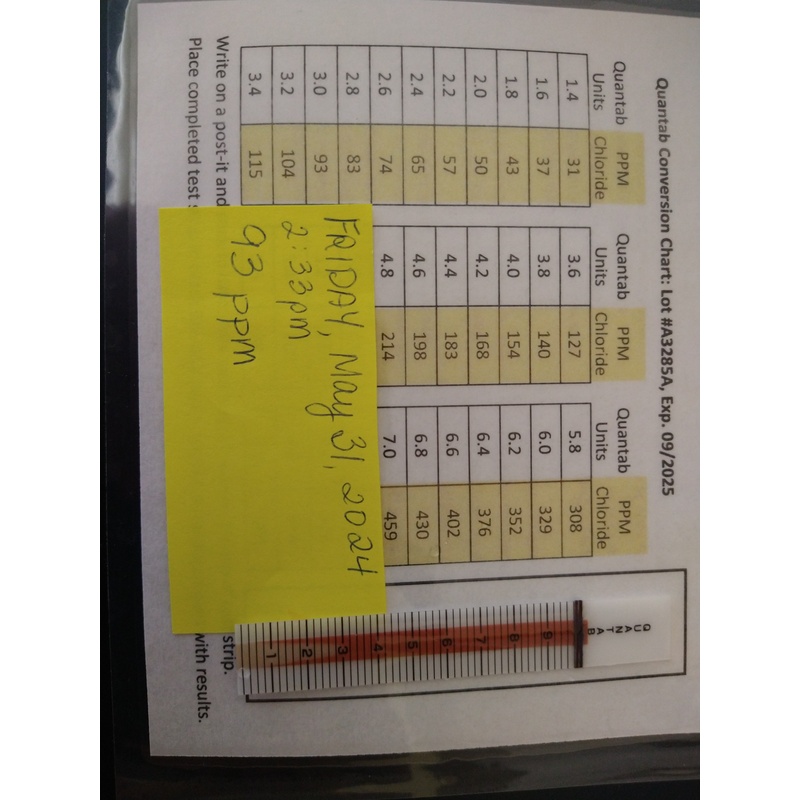 Quantab Conversion Chart: Lot #A3285A, Exp. 09/2025
Quantab Units PPM Chloride Quantab Units PPM Chloride Quantab Units PPM Chloride
1.4 31 3.6 127 5.8 308
1.6 37 3.8 140 6.0 329
1.8 43 4.0 154 6.2 352
2.0 50 4.2 168 6.4 376
2.2 57 4.4 183 6.6 402
2.4 65 4.6 198 6.8 430
2.6 74 4.8 214 7.0 459
2.8 83
3.0 93
3.2 104
3.4 115
Write on a post-it and
Place completed test strip.
with results.
FRIDAY, May 31, 2024
2:33pm
93 ppm
QUANTAB
9
8
7
6
5
4
3
2
1